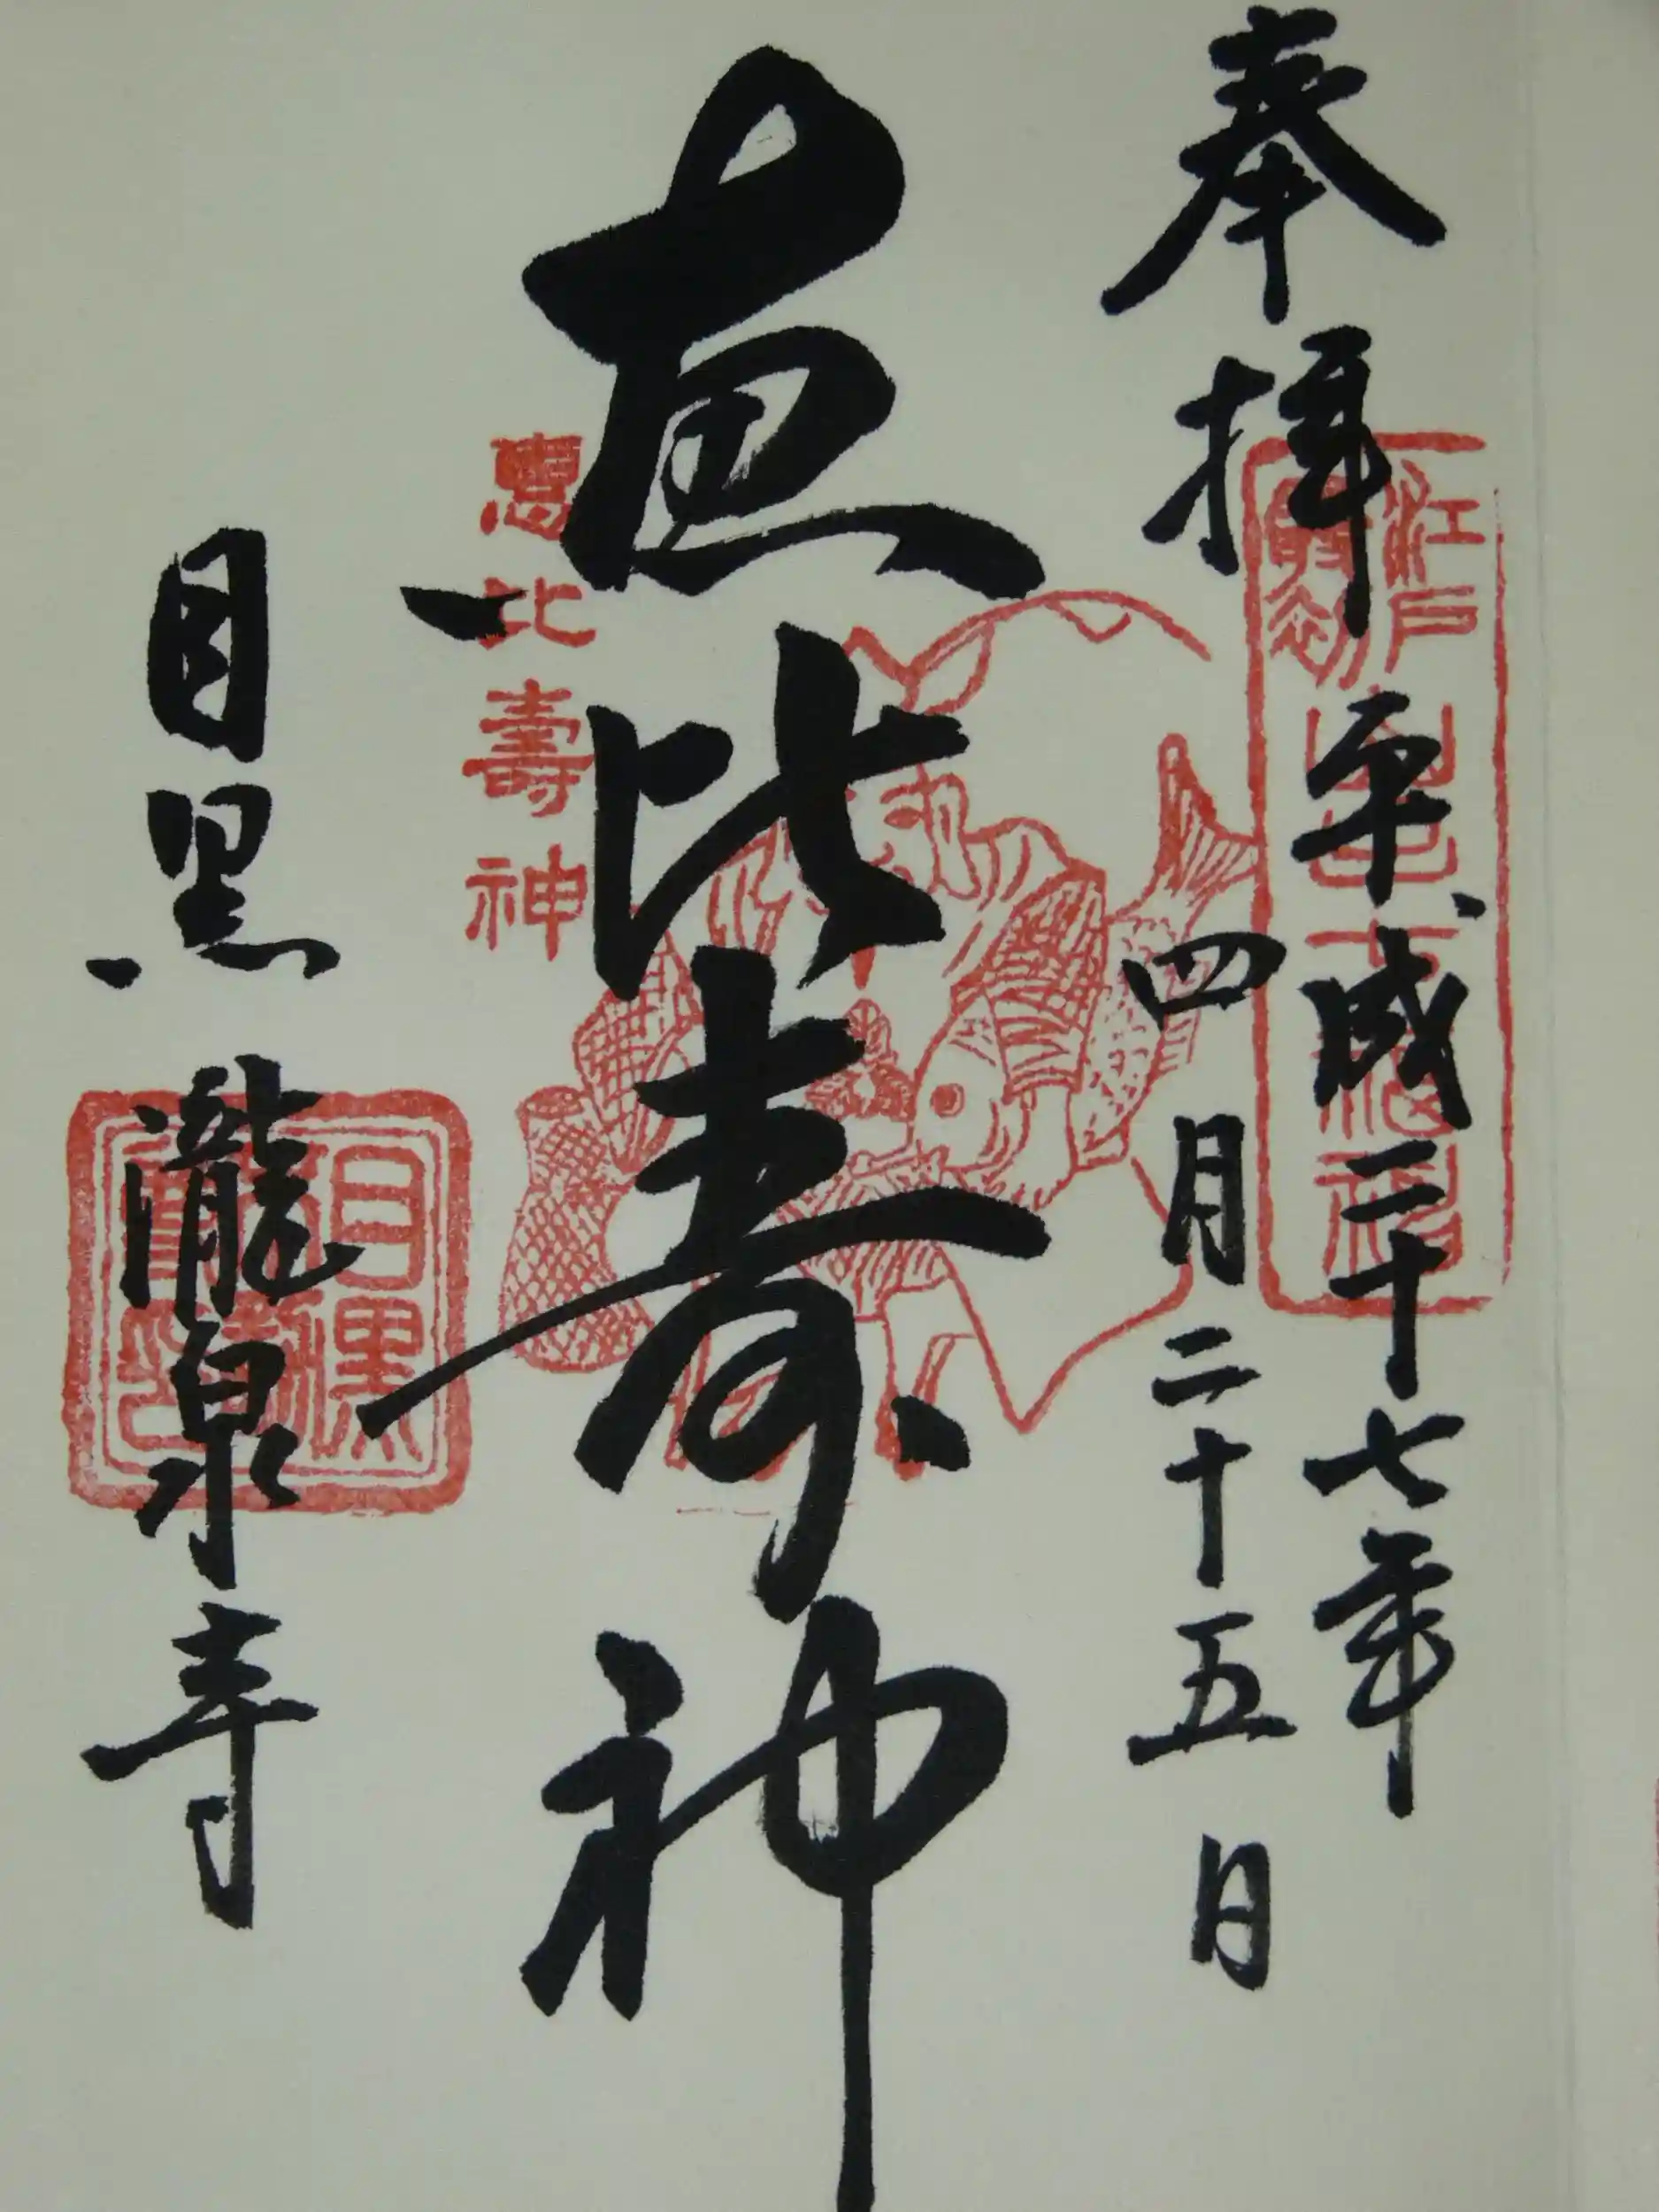 奉拝
平成二十七年
四月二十五日
恵比寿神
惠比壽神
目黒 瀧泉寺
江戸最初
山手七福神
目黒